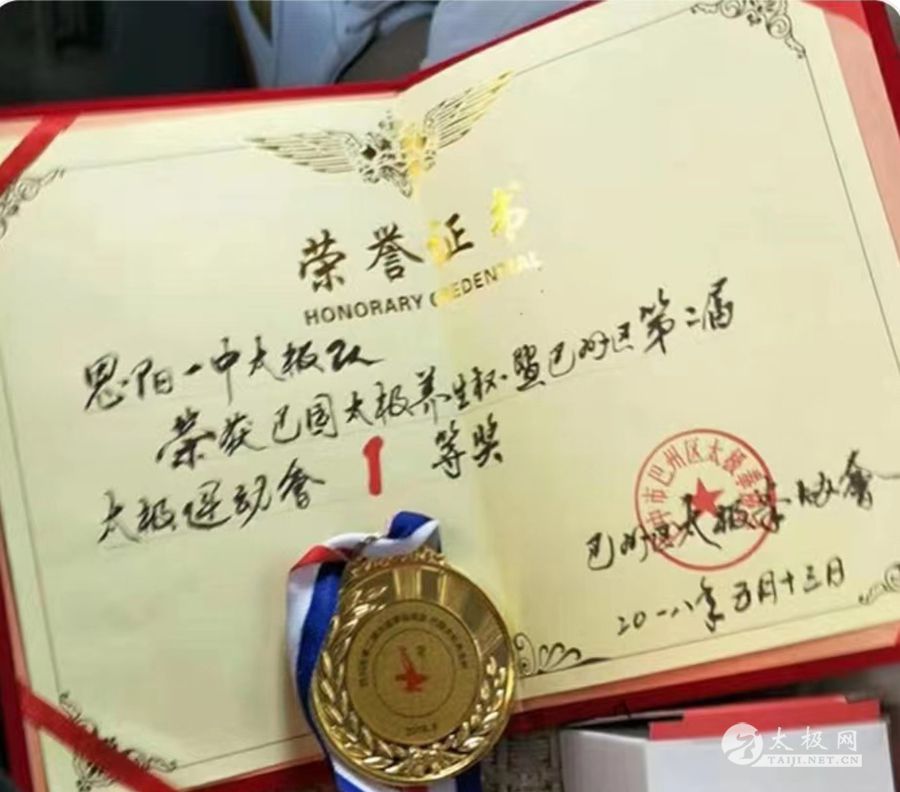 荣誉证书
HONORARY CREDENTIAL
恩阳一中太极队
荣获巴国太极养生杯·暨巴州区第二届
太极运动會 1 等奖
中市巴州区太极拳
巴州区太极拳协會
二0一八年五月十三日
2018.5
太极网
TAIJI.NET.CN